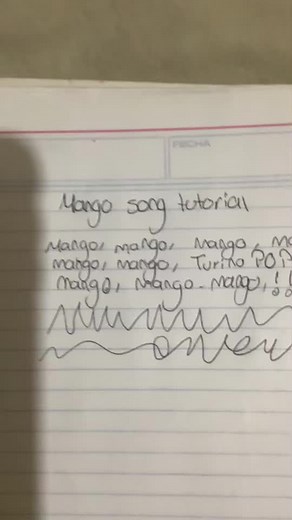 FECHA
Mango song tutorial
Mango, mango, mango, m
mango, mango, Turino
mango, mango - mango, !!